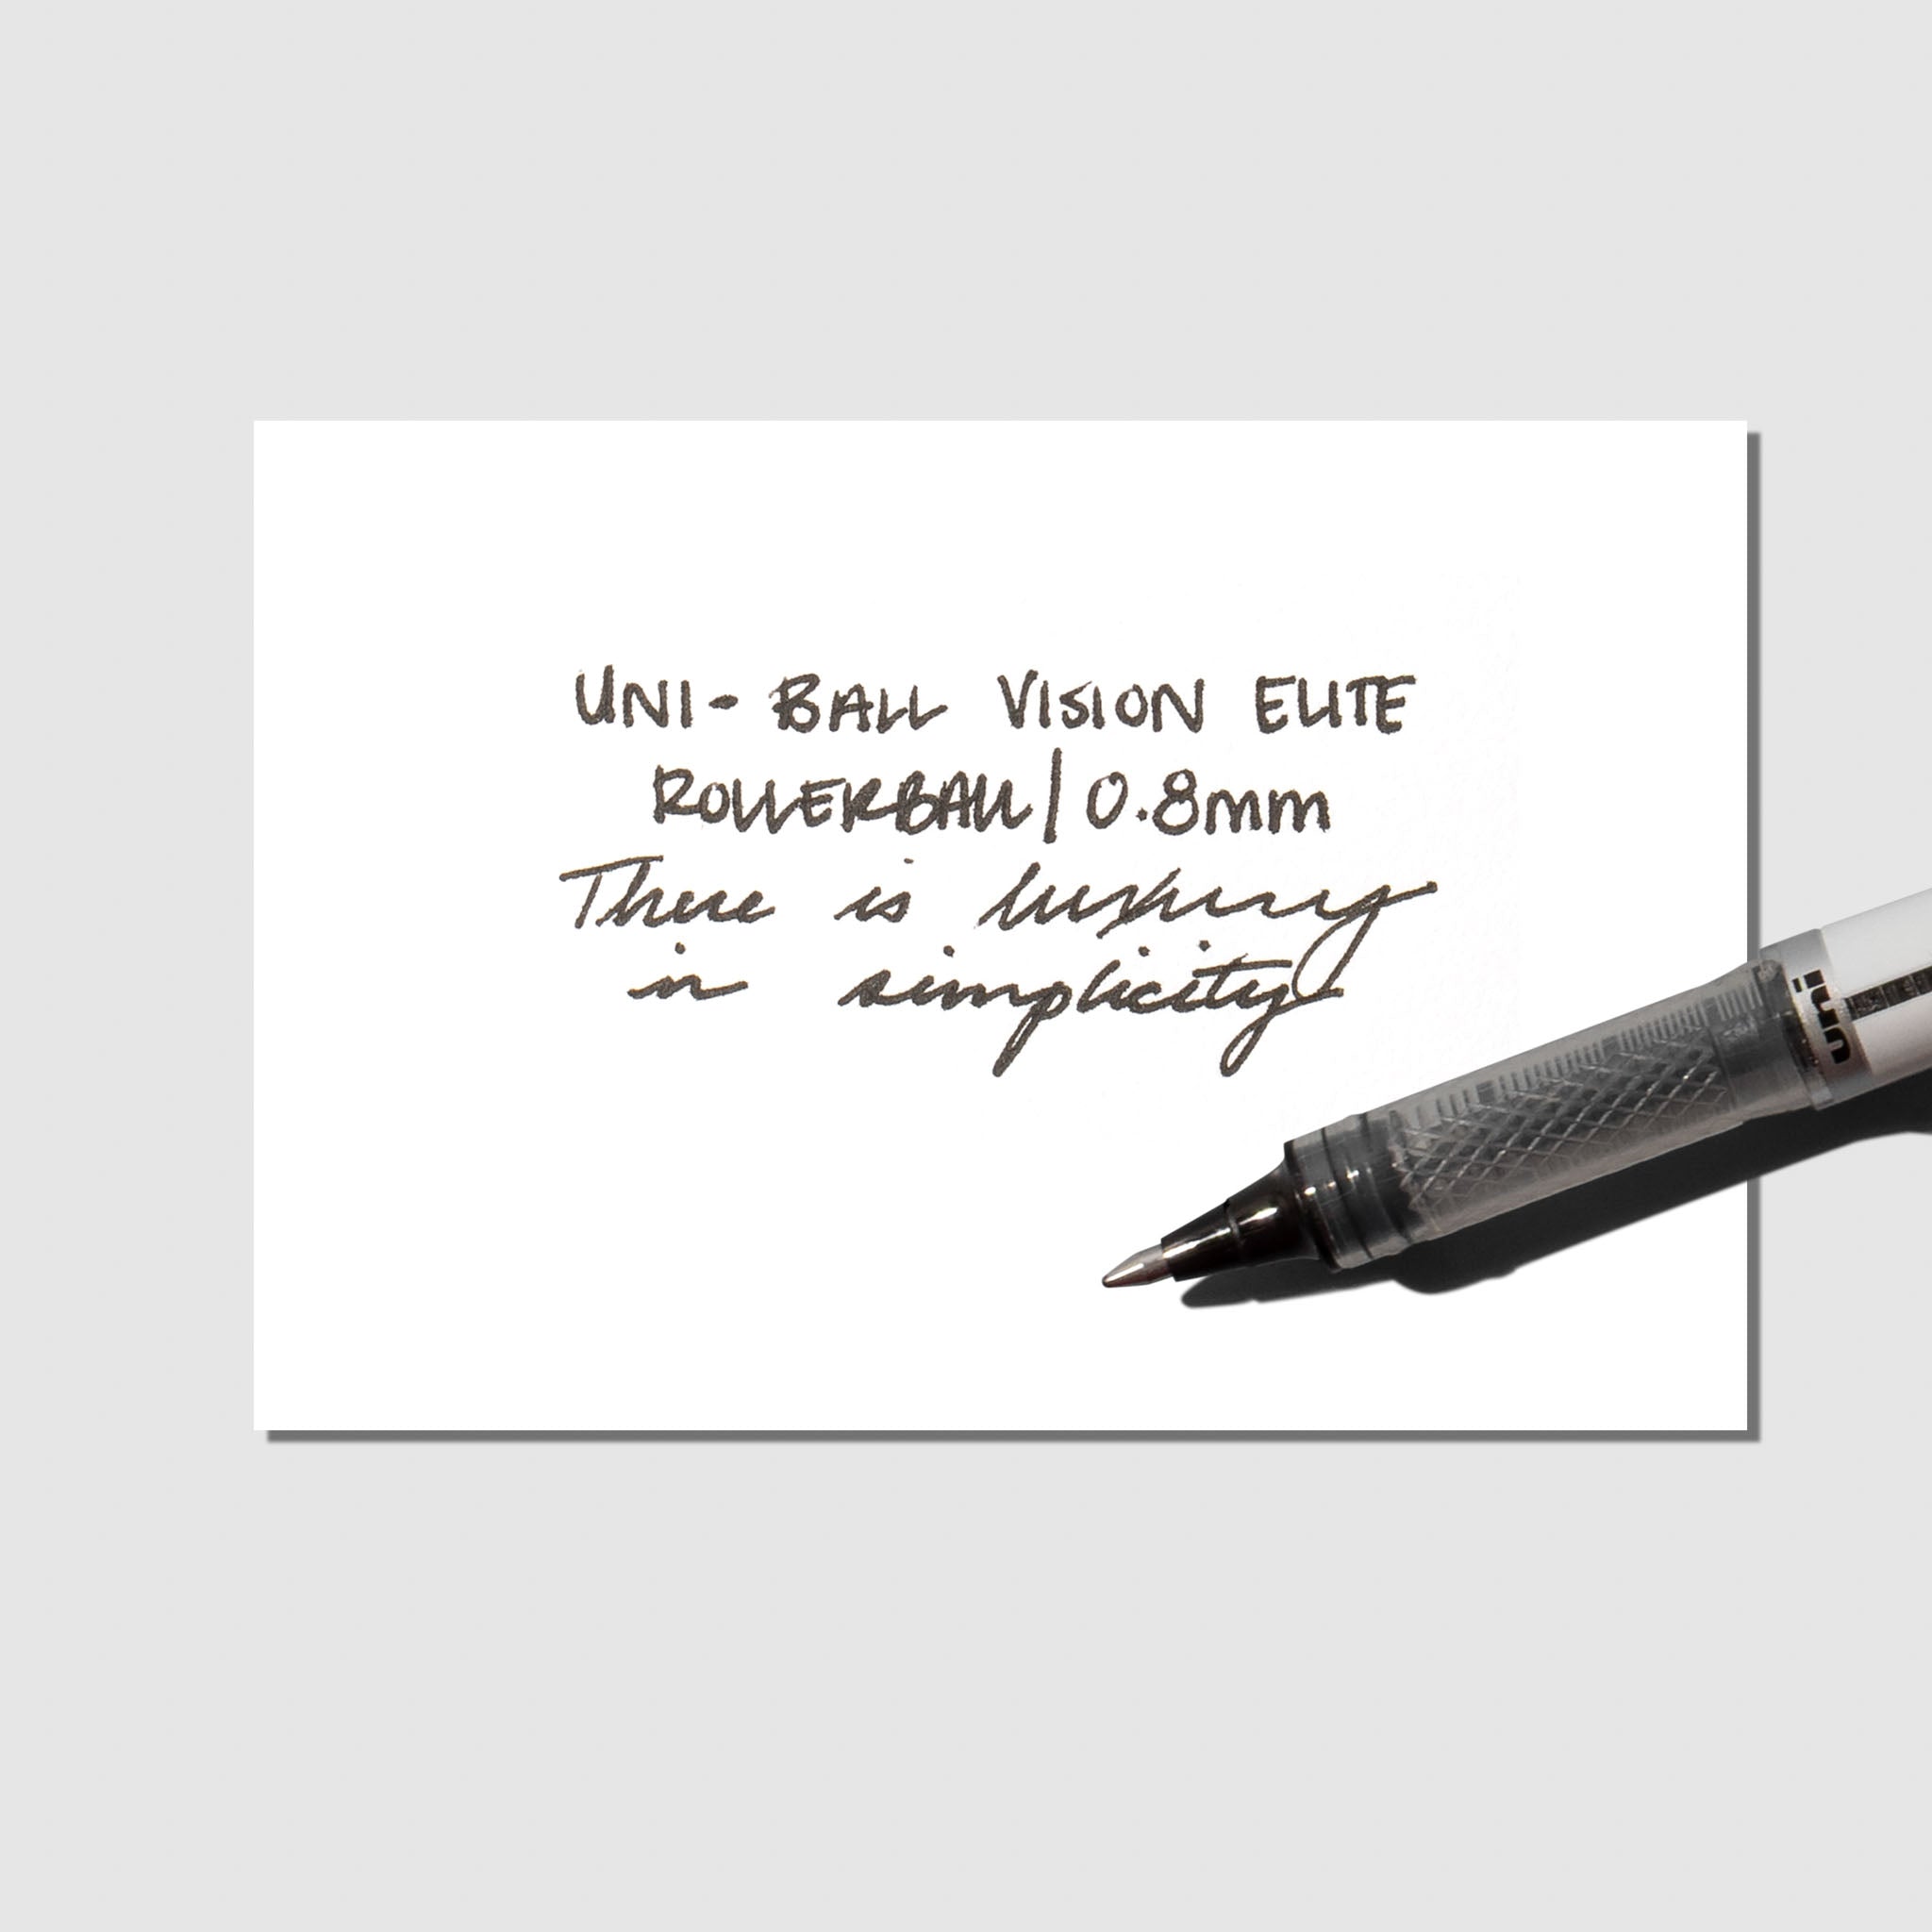 UNI-BALL VISION ELITE
ROLLERBALL | 0.8mm
There is luxury
in simplicity
uni